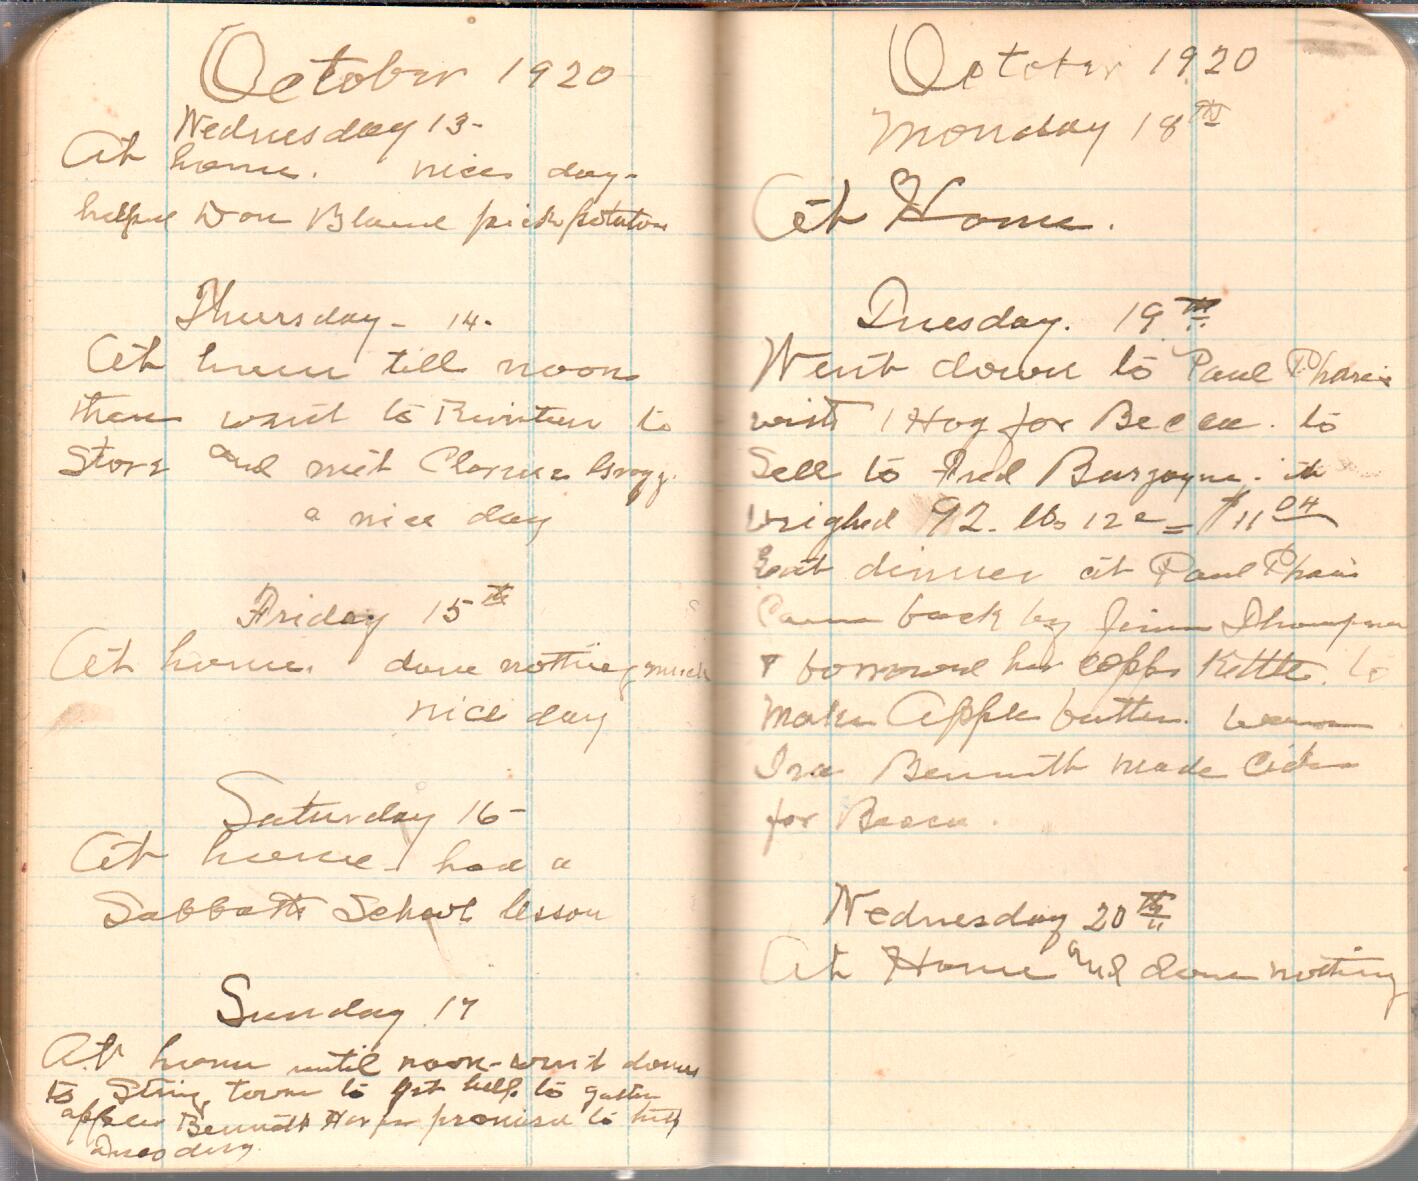 October 1920
Wednesday 13-
At home. nice day-
helped Don Bland pick potatoes
Thursday- 14-
At home till noon
then went to to
Store and met Clarence Gragg.
a nice day
Friday 15th
At home. done nothing much
nice day
Saturday 16-
At home- had a
Sabbath School lesson
Sunday 17
At home until noon- went down
to String town to get help to gather
apples Bennett Harper promised to help
October 1920
Monday 18th
At Home.
Tuesday. 19th
Went down to Paul Pharis
with 1 Hog for Becca. to
Sell to Fred Burgoyne. it
weighed 92. lbs 12c = $11 04
Eat dinner at Paul Pharis
Came back by Jim Thompson
& borrowed her copper Kettle. to
Make Apple butter.
Ira Bennett made Cider
for Becca.
Wednesday 20th
At Home and done nothing